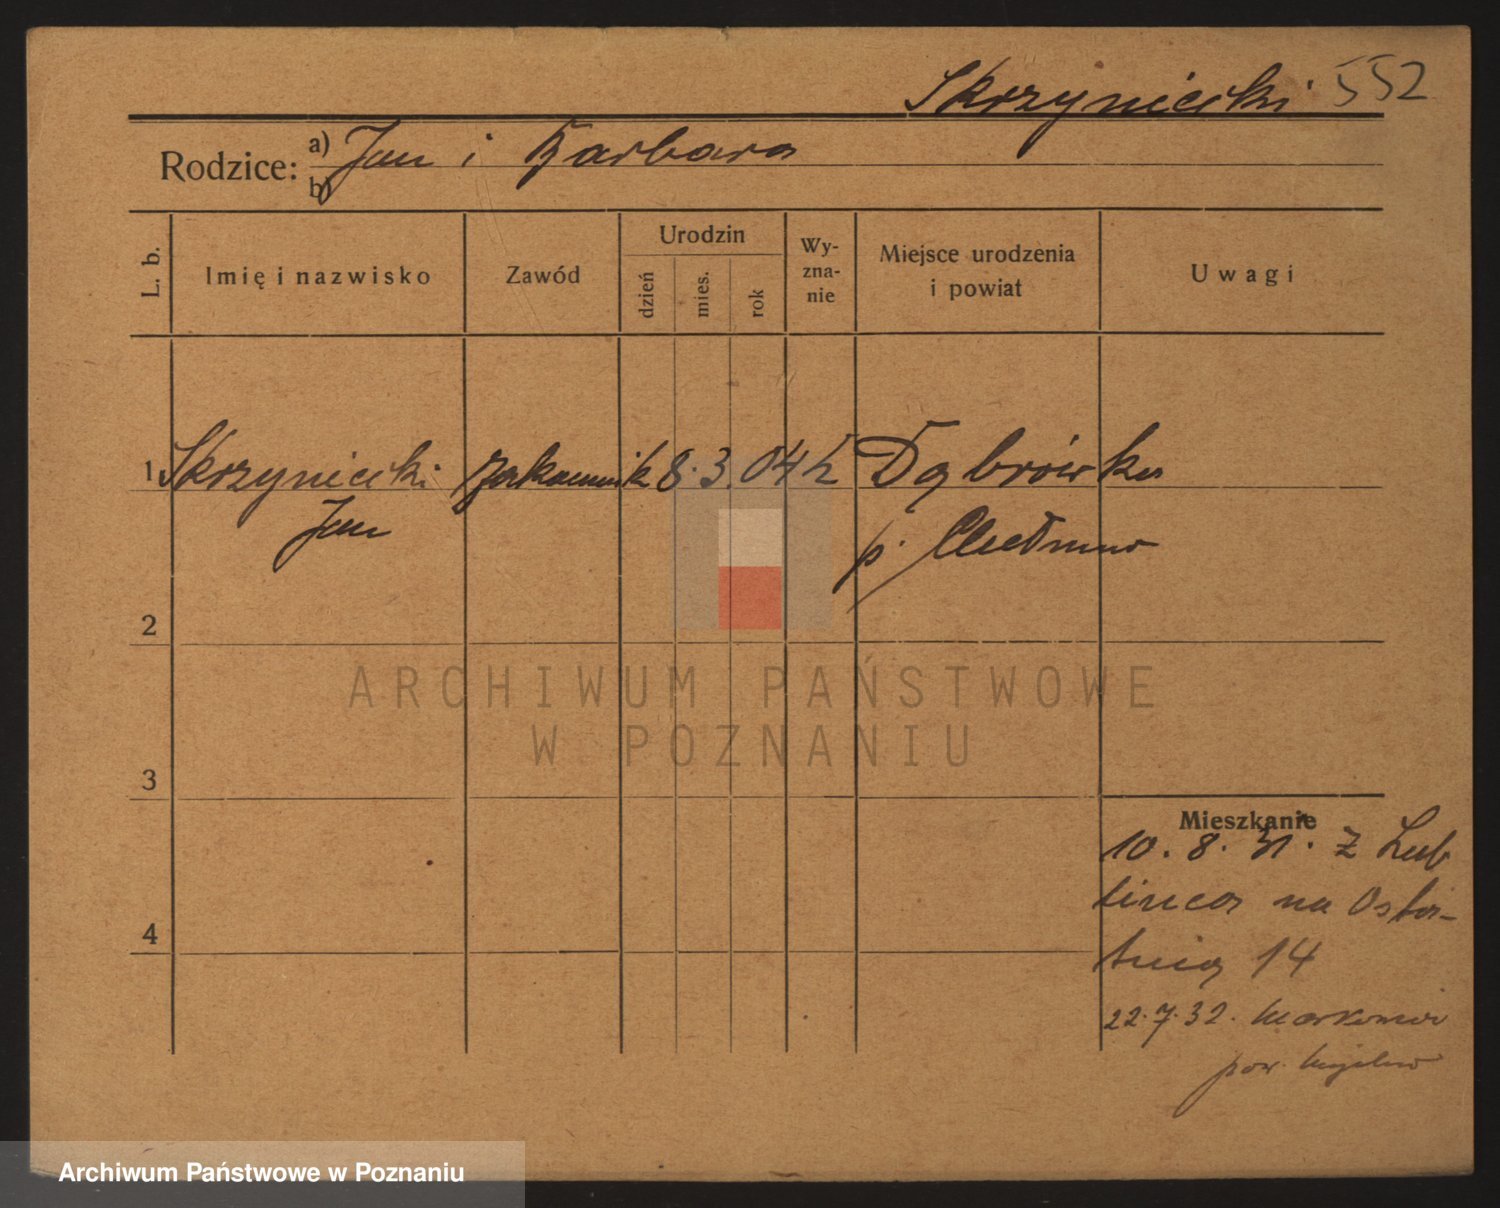 Skrzyniecki 552
Rodzice: a) Jan i Barbara
b)
L. b.
Imię i nazwisko
Zawód
Urodzin
dzień
mies.
rok
Wy-
zna-
nie
Miejsce urodzenia
i powiat
Uwagi
1 Skrzyniecki zakonnik 8. 3. 04 k Dąbrówka
Jan p. Chełmno
2
3
4
Mieszkanie
10. 8. 31. z Lub
lińca na Ostro-
14
22. 7. 32.
pow.
ARCHIWUM PAŃSTWOWE
W POZNANIU
Archiwum Państwowe w Poznaniu